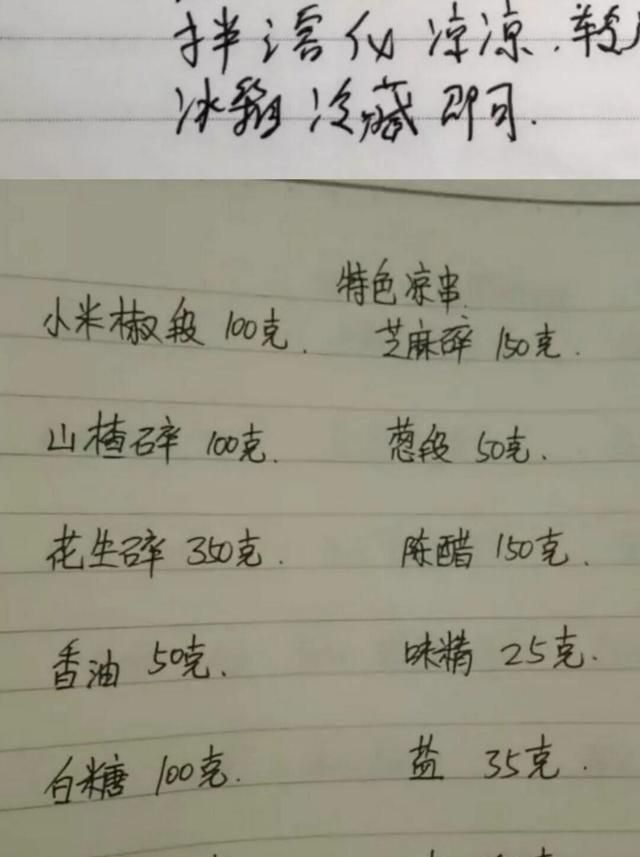 拌溶化凉凉.
冰箱冷藏即可.
特色凉串.
小米椒段 100克. 芝麻碎 150克.
山楂碎 100克. 葱段 50克.
花生碎 350克. 陈醋 150克.
香油 50克. 味精 25克.
白糖 100克. 盐 35克.